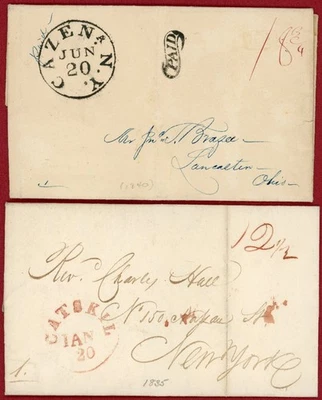 Paid
CAZENA N.Y.
JUN
20
PAID
18 3/4
Mr Jno. T. Brasee
Lancaster
Ohio
(1840)
12 1/2
Rev. Charles Hall
N 150 Nassau St
New York
CATSKILL
JAN
20
1.
1835